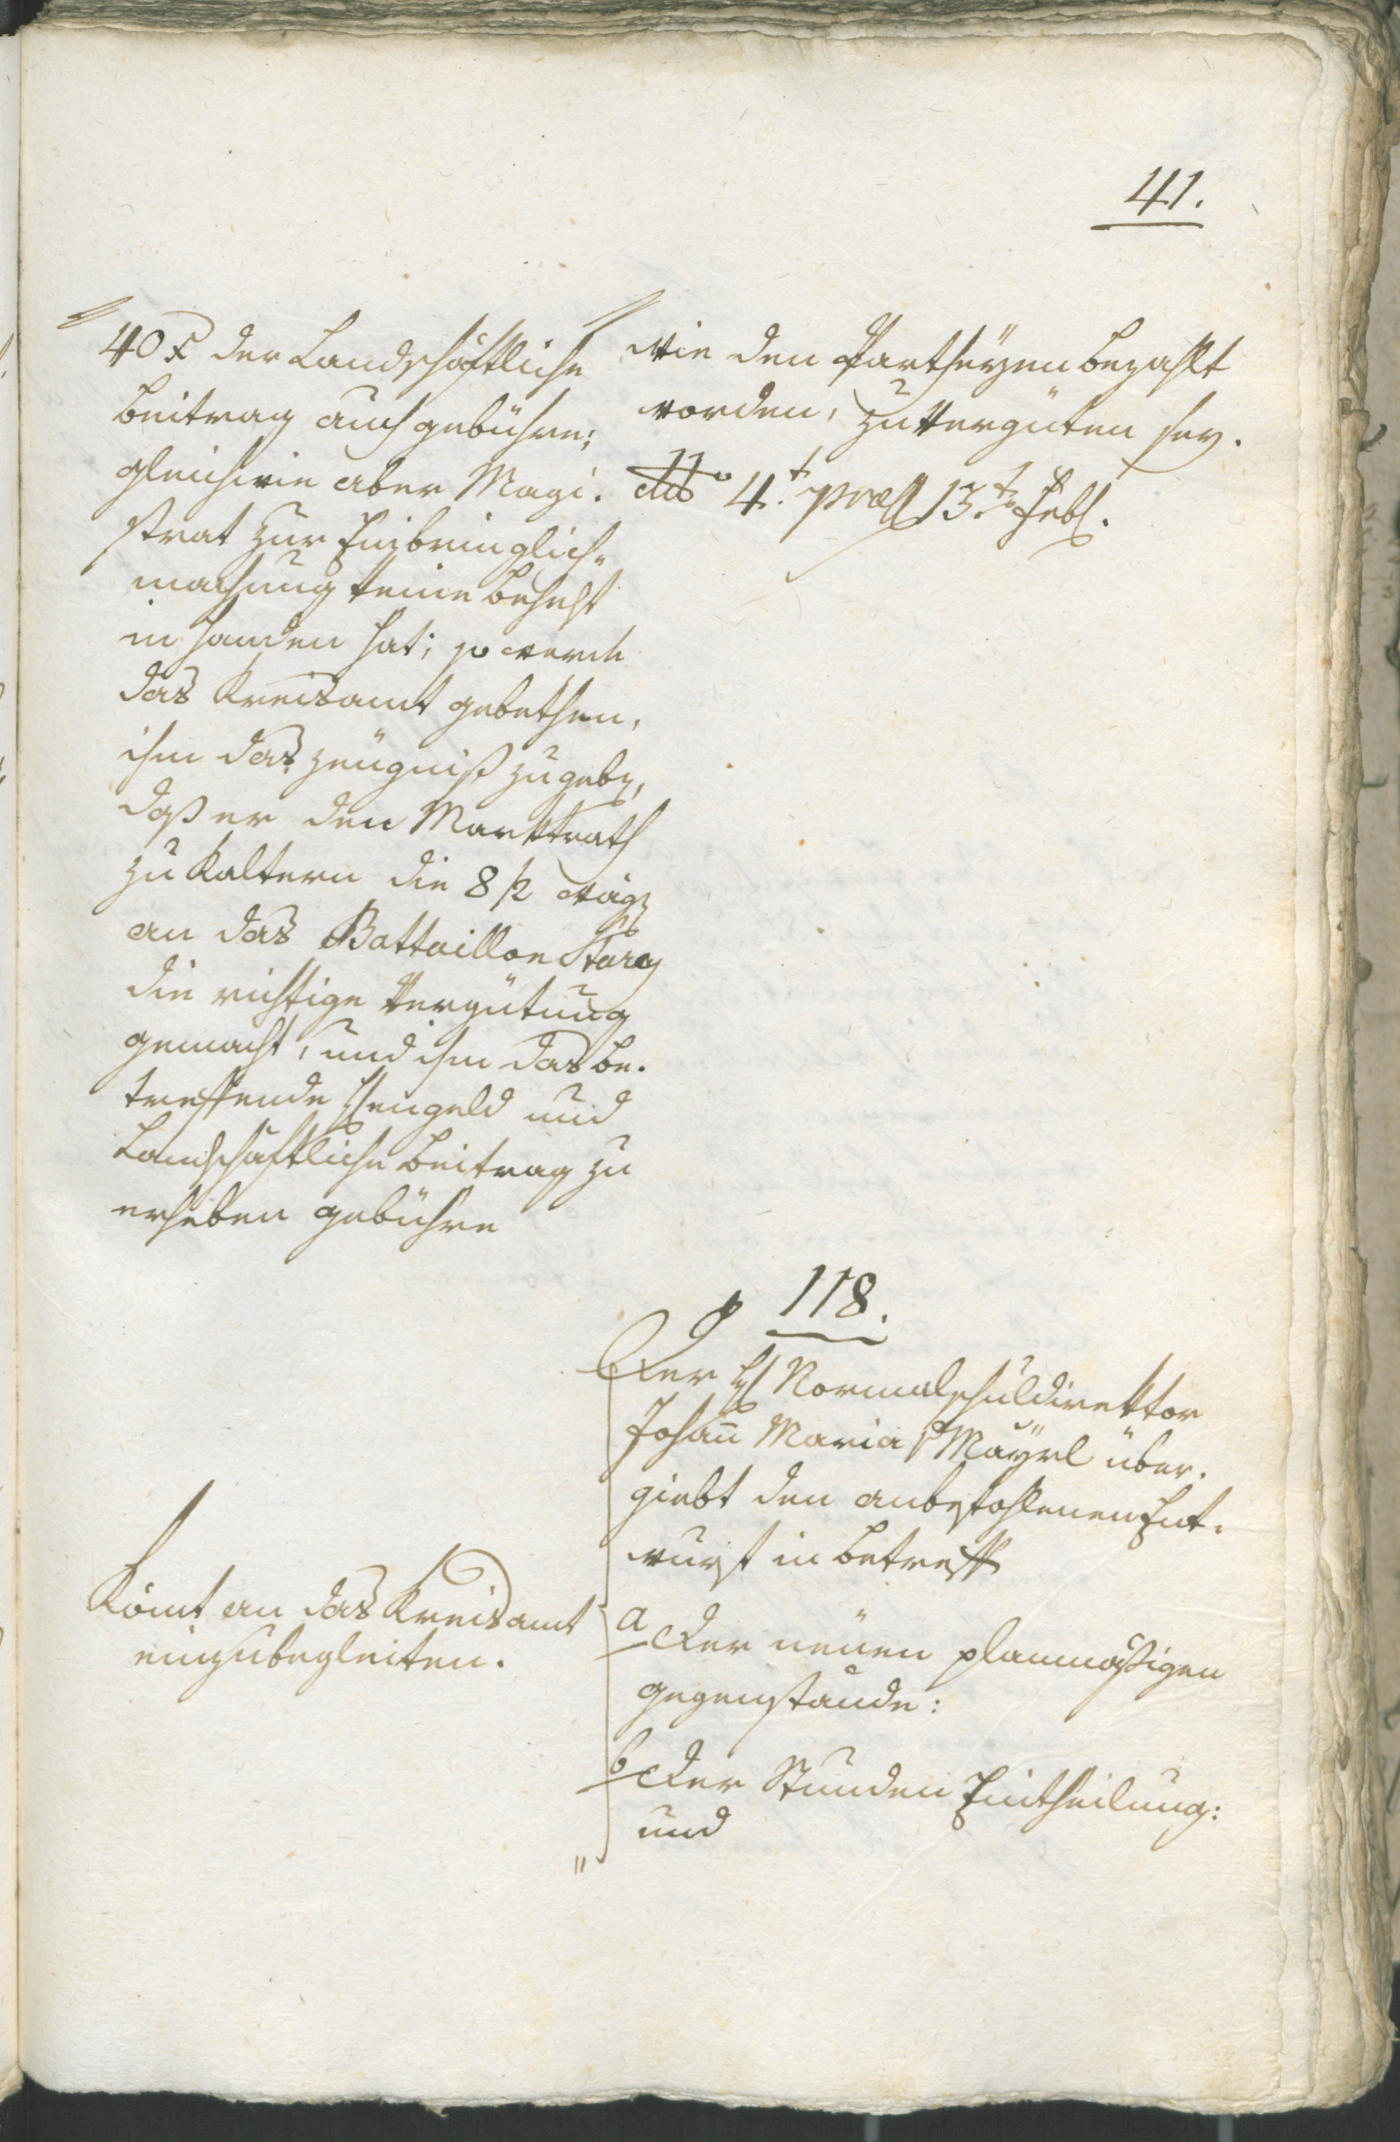 41.
40 x der Landschäftliche
Beitrag auch gebühre;
gleichwie aber Magi-
strat zur Einbringlich-
machung keine Behelf
in Handen hat; so werde
das Kreisamt gebethen,
ihm das Zeugniß zu geben,
daß er den Marktrath
zu Kaltern die 8 1/2 Wäg
an das Battaillon Stary
die richtige Vergütung
gemacht, und ihm das be-
treffende und
Landschäftliche Beitrag zu
erheben gebühre
wie den Partheyen bezahlt
worden, zu vergüten sey.
dto 4t praes 13t Feb.
118.
Der H Normalschuldirektor
Johann Maria Mäyrl über-
giebt den anbefohlenen Ent-
wurf in Betreff
a Der neuen planmäßigen
gegenstände:
b Der Stunden Eintheilung:
und
Kömt an das Kreisamt
einzubegleiten.